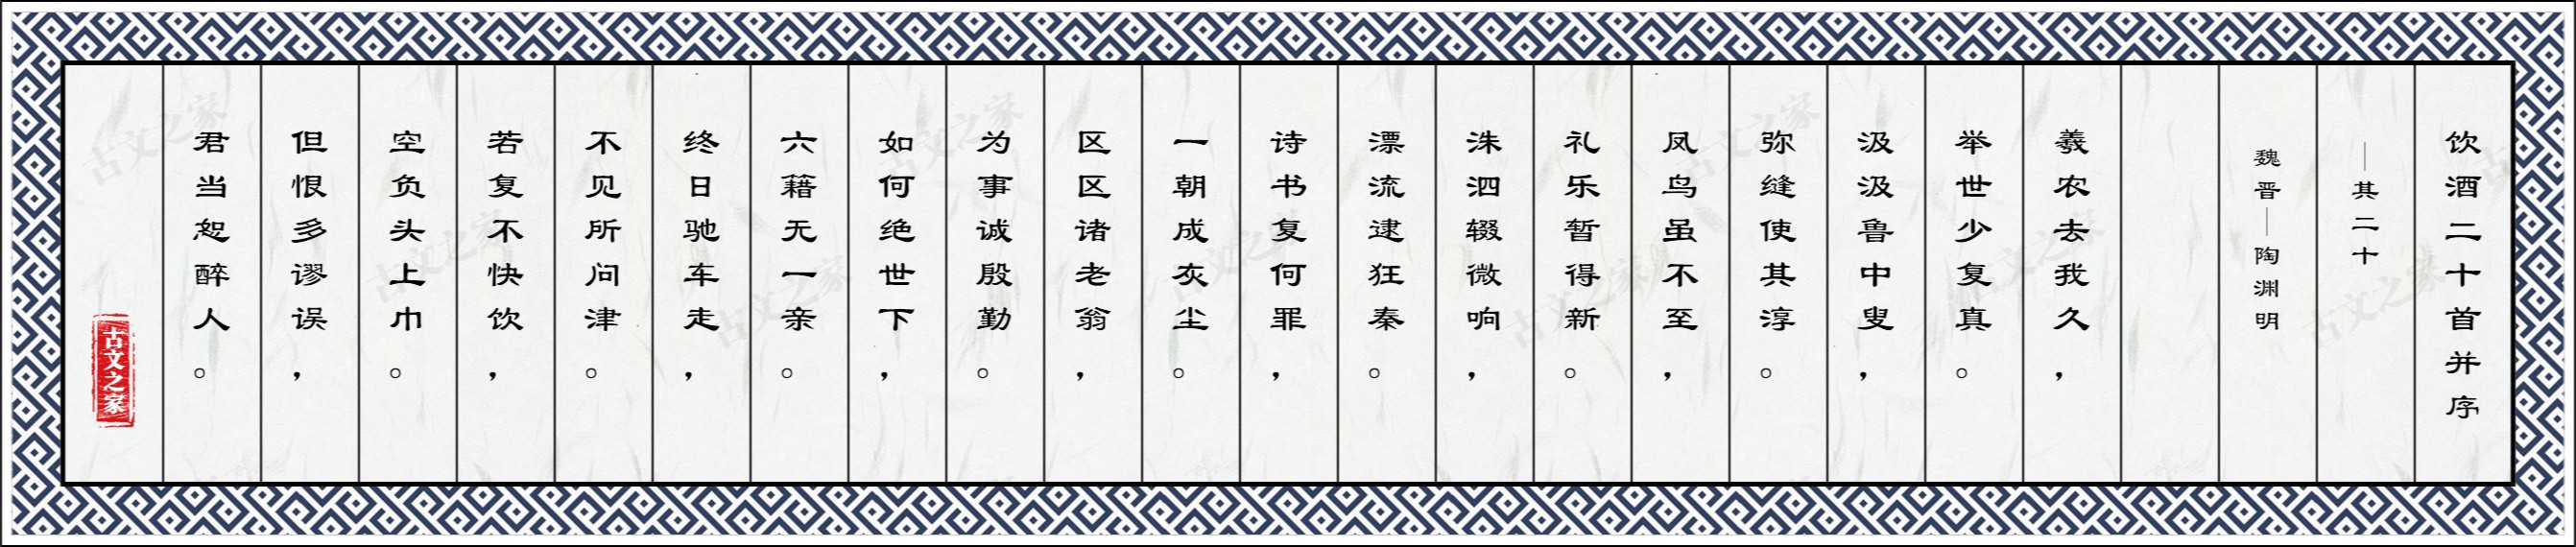 饮酒二十首并序
—其二十
魏晋—陶渊明
羲农去我久，
举世少复真。
汲汲鲁中叟，
弥缝使其淳。
凤鸟虽不至，
礼乐暂得新。
洙泗辍微响，
漂流逮狂秦。
诗书复何罪，
一朝成灰尘。
区区诸老翁，
为事诚殷勤。
如何绝世下，
六籍无一亲。
终日驰车走，
不见所问津。
若复不快饮，
空负头上巾。
但恨多谬误，
君当恕醉人。
古文之家